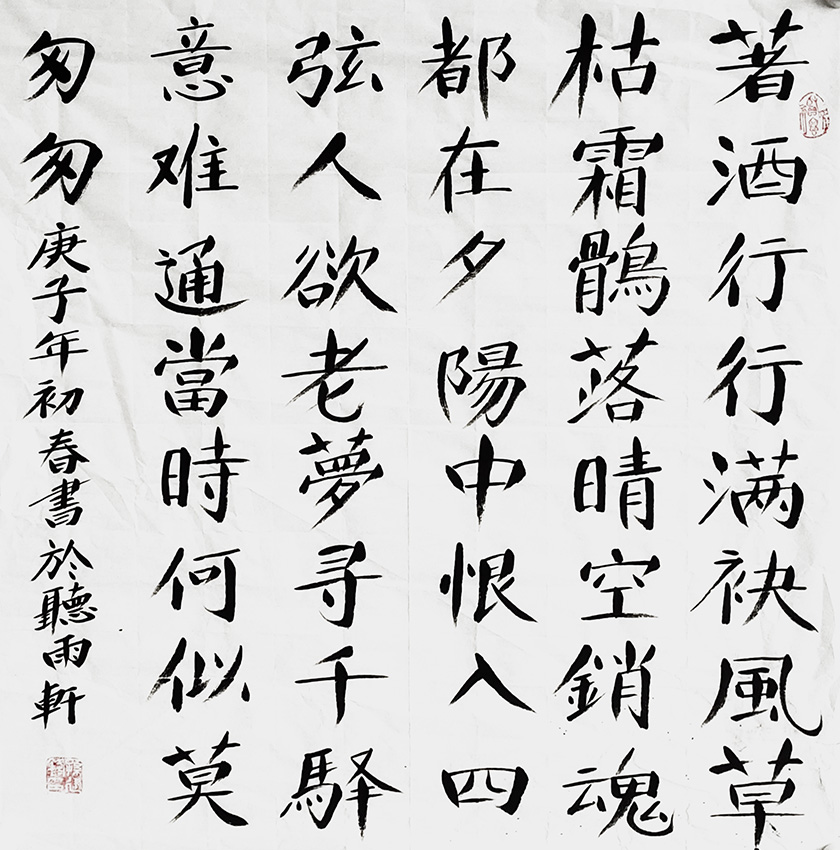 著酒行行满袂風草
枯霜鶻落晴空銷魂
都在夕陽中恨入四
弦人欲老夢寻千驿
意难通當時何似莫
匆匆庚子年初春書於聽雨軒